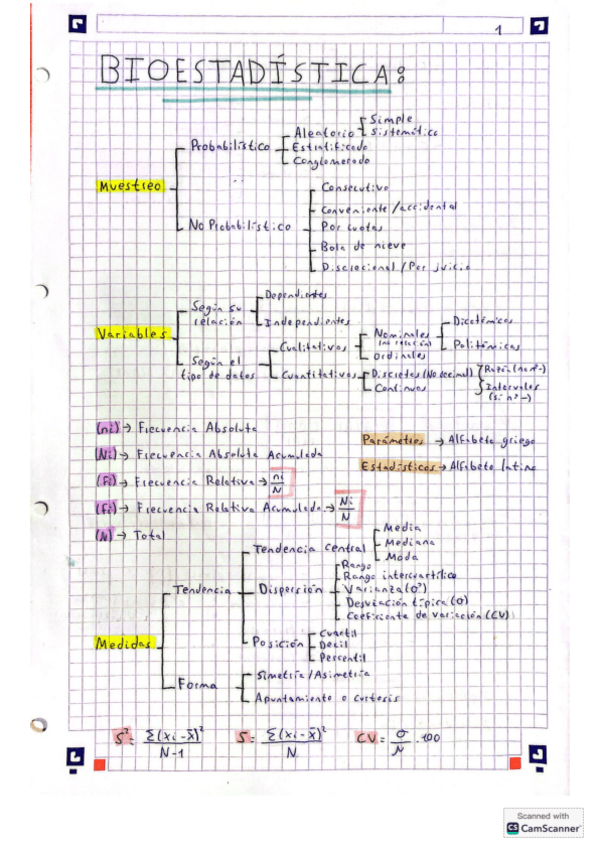 1
BIOESTADÍSTICA:
Muestreo
Probabilístico
Aleatorio
Simple
Sistemático
Estratificado
Conglomerado
No Probabilístico
Consecutivo
Conveniente/accidental
Por cuotas
Bola de nieve
Discrecional/Por juicio
Variables
Según su relación
Dependientes
Independientes
Según el tipo de datos
Cualitativas
Nominales (no relación)
Dicotómicas
Politómicas
Ordinales
Cuantitativas
Discretas (No decimal)
Continuas
Razón (no nº-)
Intervalos (si nº-)
(ni) → Frecuencia Absoluta
(Ni) → Frecuencia Absoluta Acumulada
(fi) → Frecuencia Relativa → ni/N
(Fi) → Frecuencia Relativa Acumulada → Ni/N
(N) → Total
Parámetros → Alfabeto griego
Estadísticos → Alfabeto latino
Medidas
Tendencia
Tendencia central
Media
Mediana
Moda
Dispersión
Rango
Rango intercuartílico
Varianza (σ²)
Desviación típica (σ)
Coeficiente de variación (CV)
Posición
Cuartil
Decil
Percentil
Forma
Simetría/Asimetría
Apuntamiento o curtosis
S² = Σ(xi - x̄)² / N-1
S = Σ(xi - x̄)² / N
CV = σ/N · 100
Scanned with
CS CamScanner